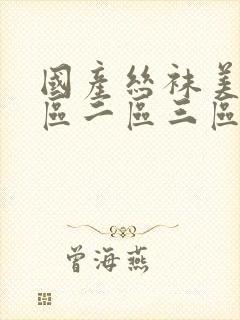 國產絲袜美
區二區三區
曾海燕